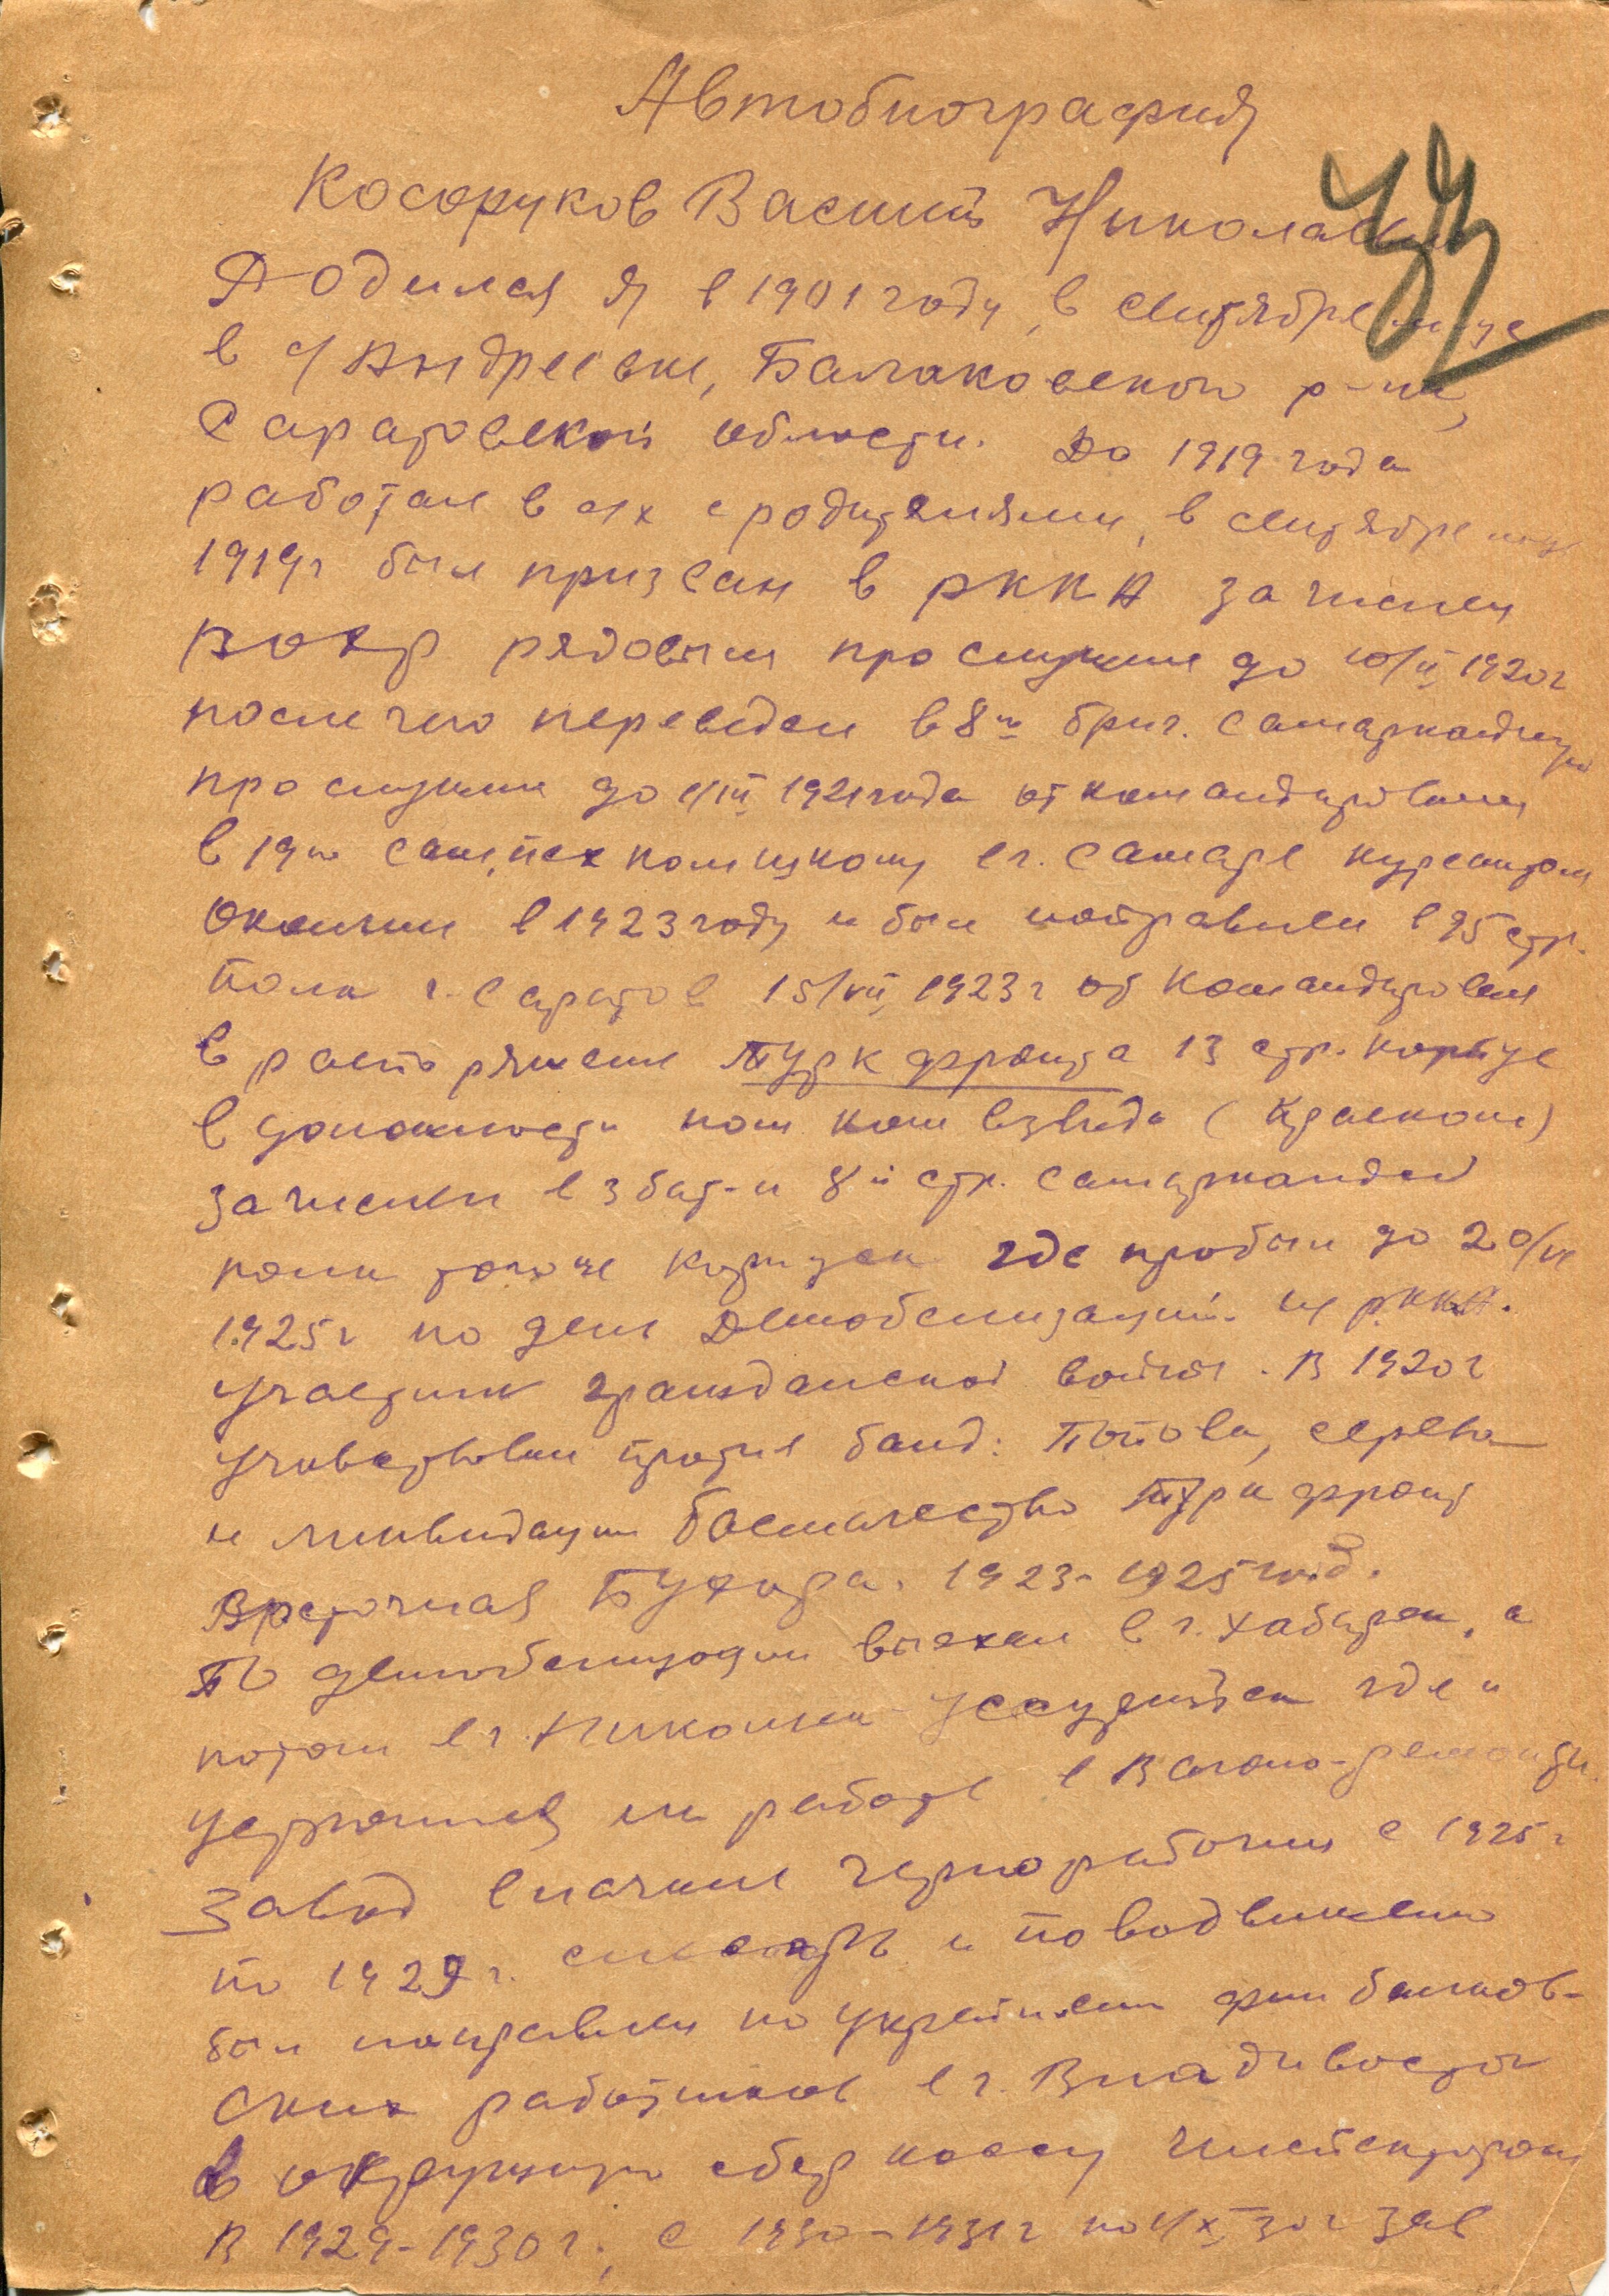 Автобиография
Косоруков Василий Николаевич
Родился я в 1901 году, в сентябре м-це
в с/ Андреевке, Балаковского р-на,
Саратовской области. До 1919 года
работал в с/х с родителями, в сентябре
1919г был призван в РККА зачислен
рядовым прослужил до 10/II 1920г
после чего переведен в 8ю бриг. Самаркандскую
прослужил до 1/III 1921 года откомандирован
в 19ю сам. пех комшколу в г. Самаре курсантом
окончил в 1923 году и был направлен в 95 стр.
полк г. Саратов 15/VII 1923г откомандирован
в распоряжение Турк фронта 13 стр. корпус
в должности пом ком взвода (Краском)
зачислен в 3 бат-н 8й стр. Самаркандский
полк того же корпуса где пробыл до 20/VI
1925г по день демобелизаций из РККА.
участник гражданской войны. В 1920г
учавствовал против банд: Попова, Серова
и ликвидации басмачества Турк фронт
Восточная Бухара. 1923-1925 год.
По демобелизации выехал в г. Хабаров, а
потом в г. Никольск Уссурийск где и
устроился на работе в Вагоно-ремонтн.
завод вначале чернорабочим с 1925г
по 1929г. и по выдвижению
был направлен на укрепление фин банков-
ских работников в г. Владивосток
в окружную сбер кассу инспектором
в 1929-1930г; с 1930-1931г по 1/X 30г Зав